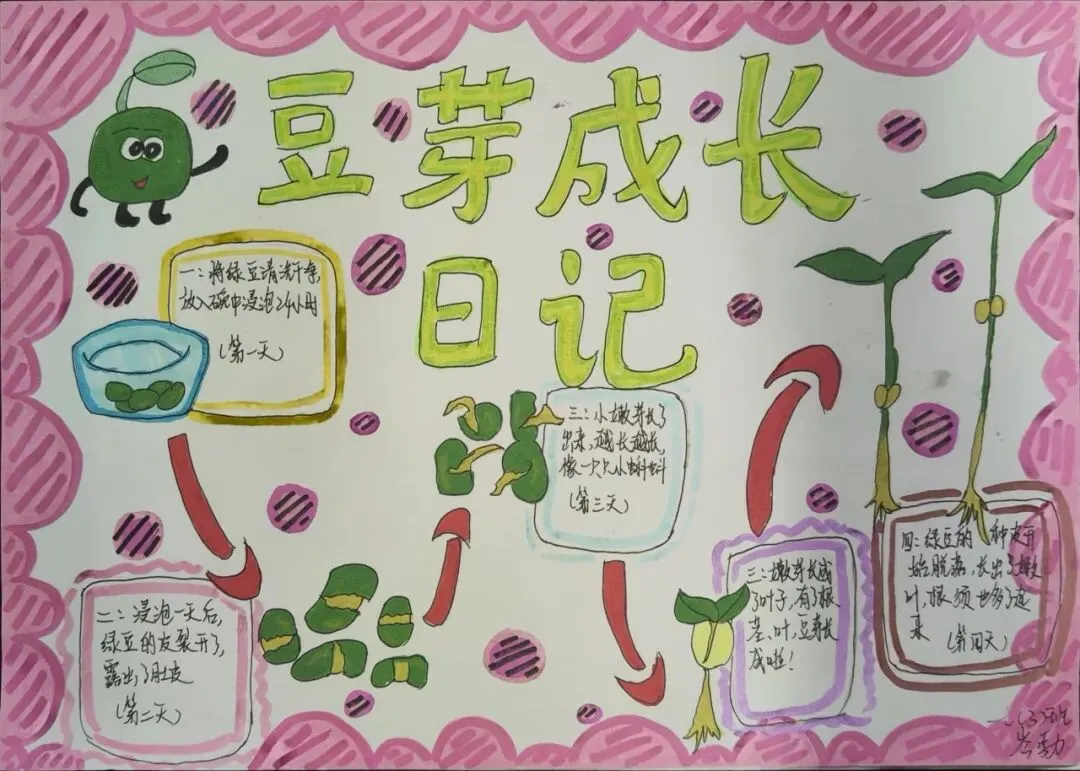 豆芽成长
日记
一：将绿豆清洗干净,
放入碗中浸泡24小时
(第一天)
二：浸泡一天后,
绿豆的皮裂开了,
露出了肚皮
(第二天)
三：小嫩芽长了
出来,越长越长,
像一只只小蝌蚪
(第三天)
三：嫩芽长成
了叶子,有了根
茎、叶,豆芽长
成啦!
四：绿豆的种皮开
始脱落,长出了嫩
叶,根须也多了起
来
(第四天)
一(3)班